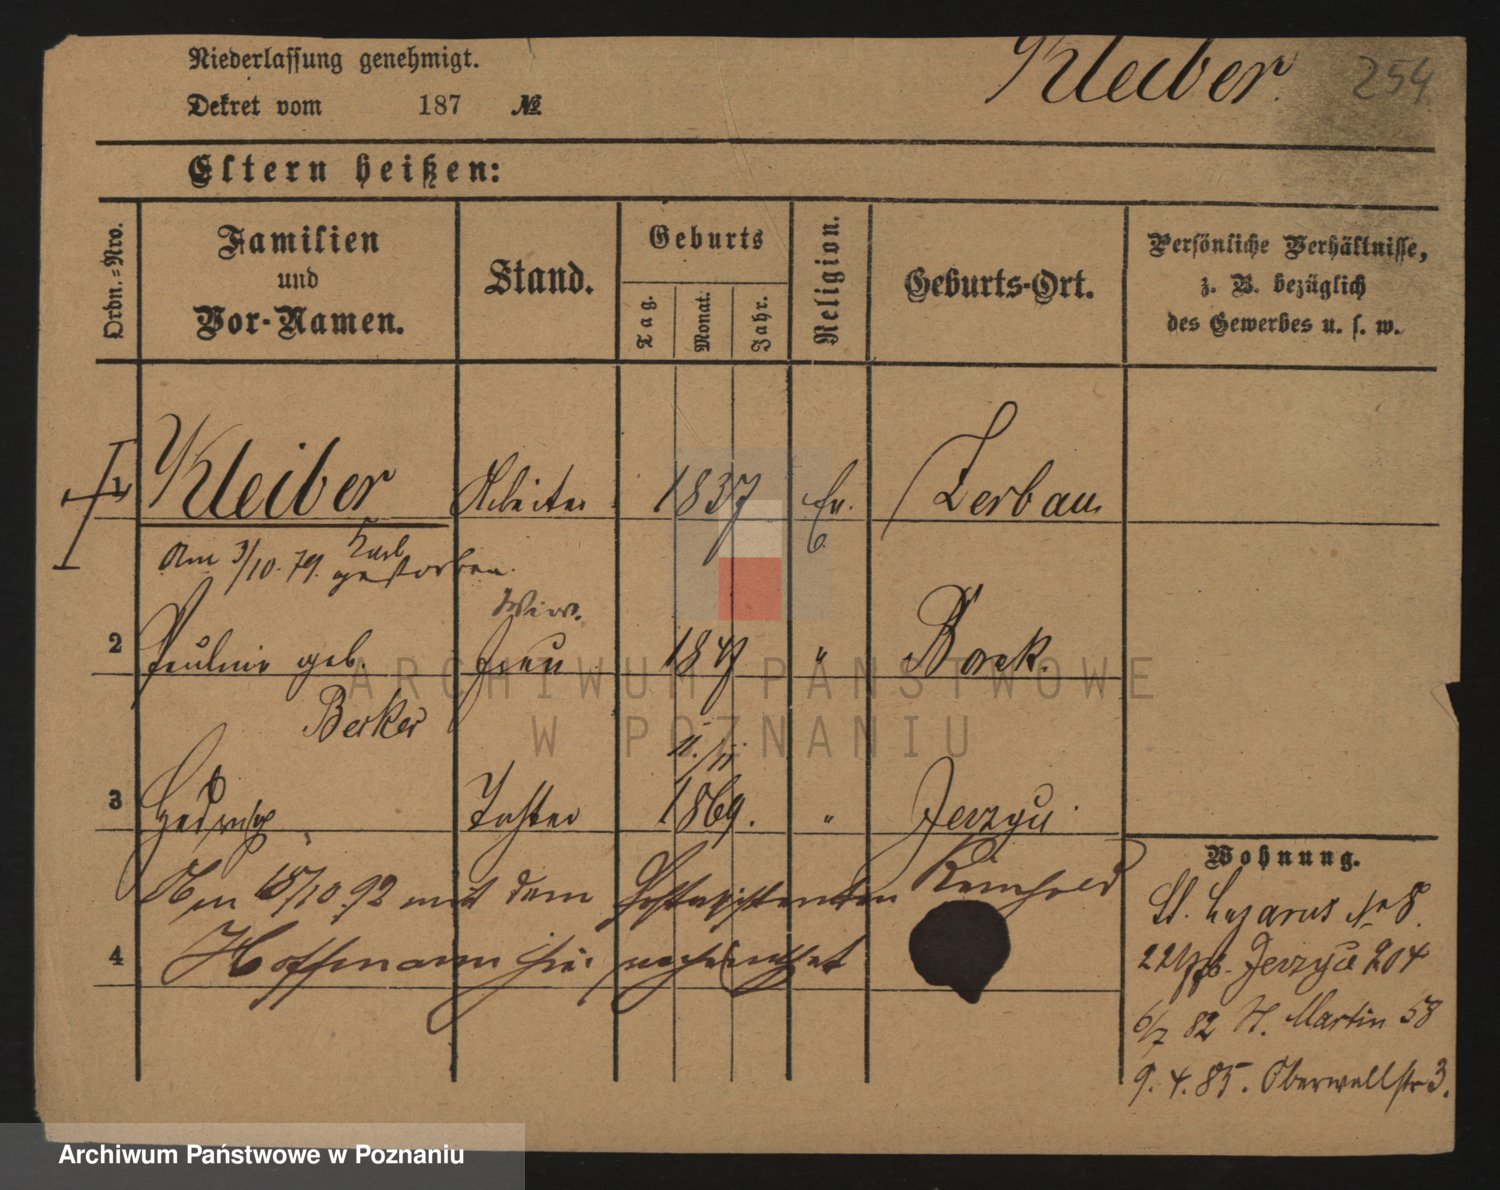 Niederlassung genehmigt.
Kleiber 254
Dekret vom 187 №
Eltern heißen:
Ordn.-Nro.
Familien
und
Vor-Namen.
Stand.
Geburts
Tag.
Monat.
Jahr.
Religion.
Geburts-Ort.
Persönliche Verhältnisse,
z. B. bezüglich
des Gewerbes u. s. w.
1 Kleiber Arbeiter 1837 Ev. Zerbau
Karl
Am 3/10. 79. gestorben.
Wiw.
2 geb. Frau 1847 " Borek.
Becker
11./11
3 Hedwig Tochter 1869. " Jerzyce
Am 15/10 92 mit dem Reinhold
4 Hoffmann hier
Wohnung.
St. Lazarus No 8.
Jerzyce 204
6/7 82 St. Martin 58
9. 4. 85. Oberwallstr 3.
ARCHIWUM PAŃSTWOWE
W POZNANIU
Archiwum Państwowe w Poznaniu